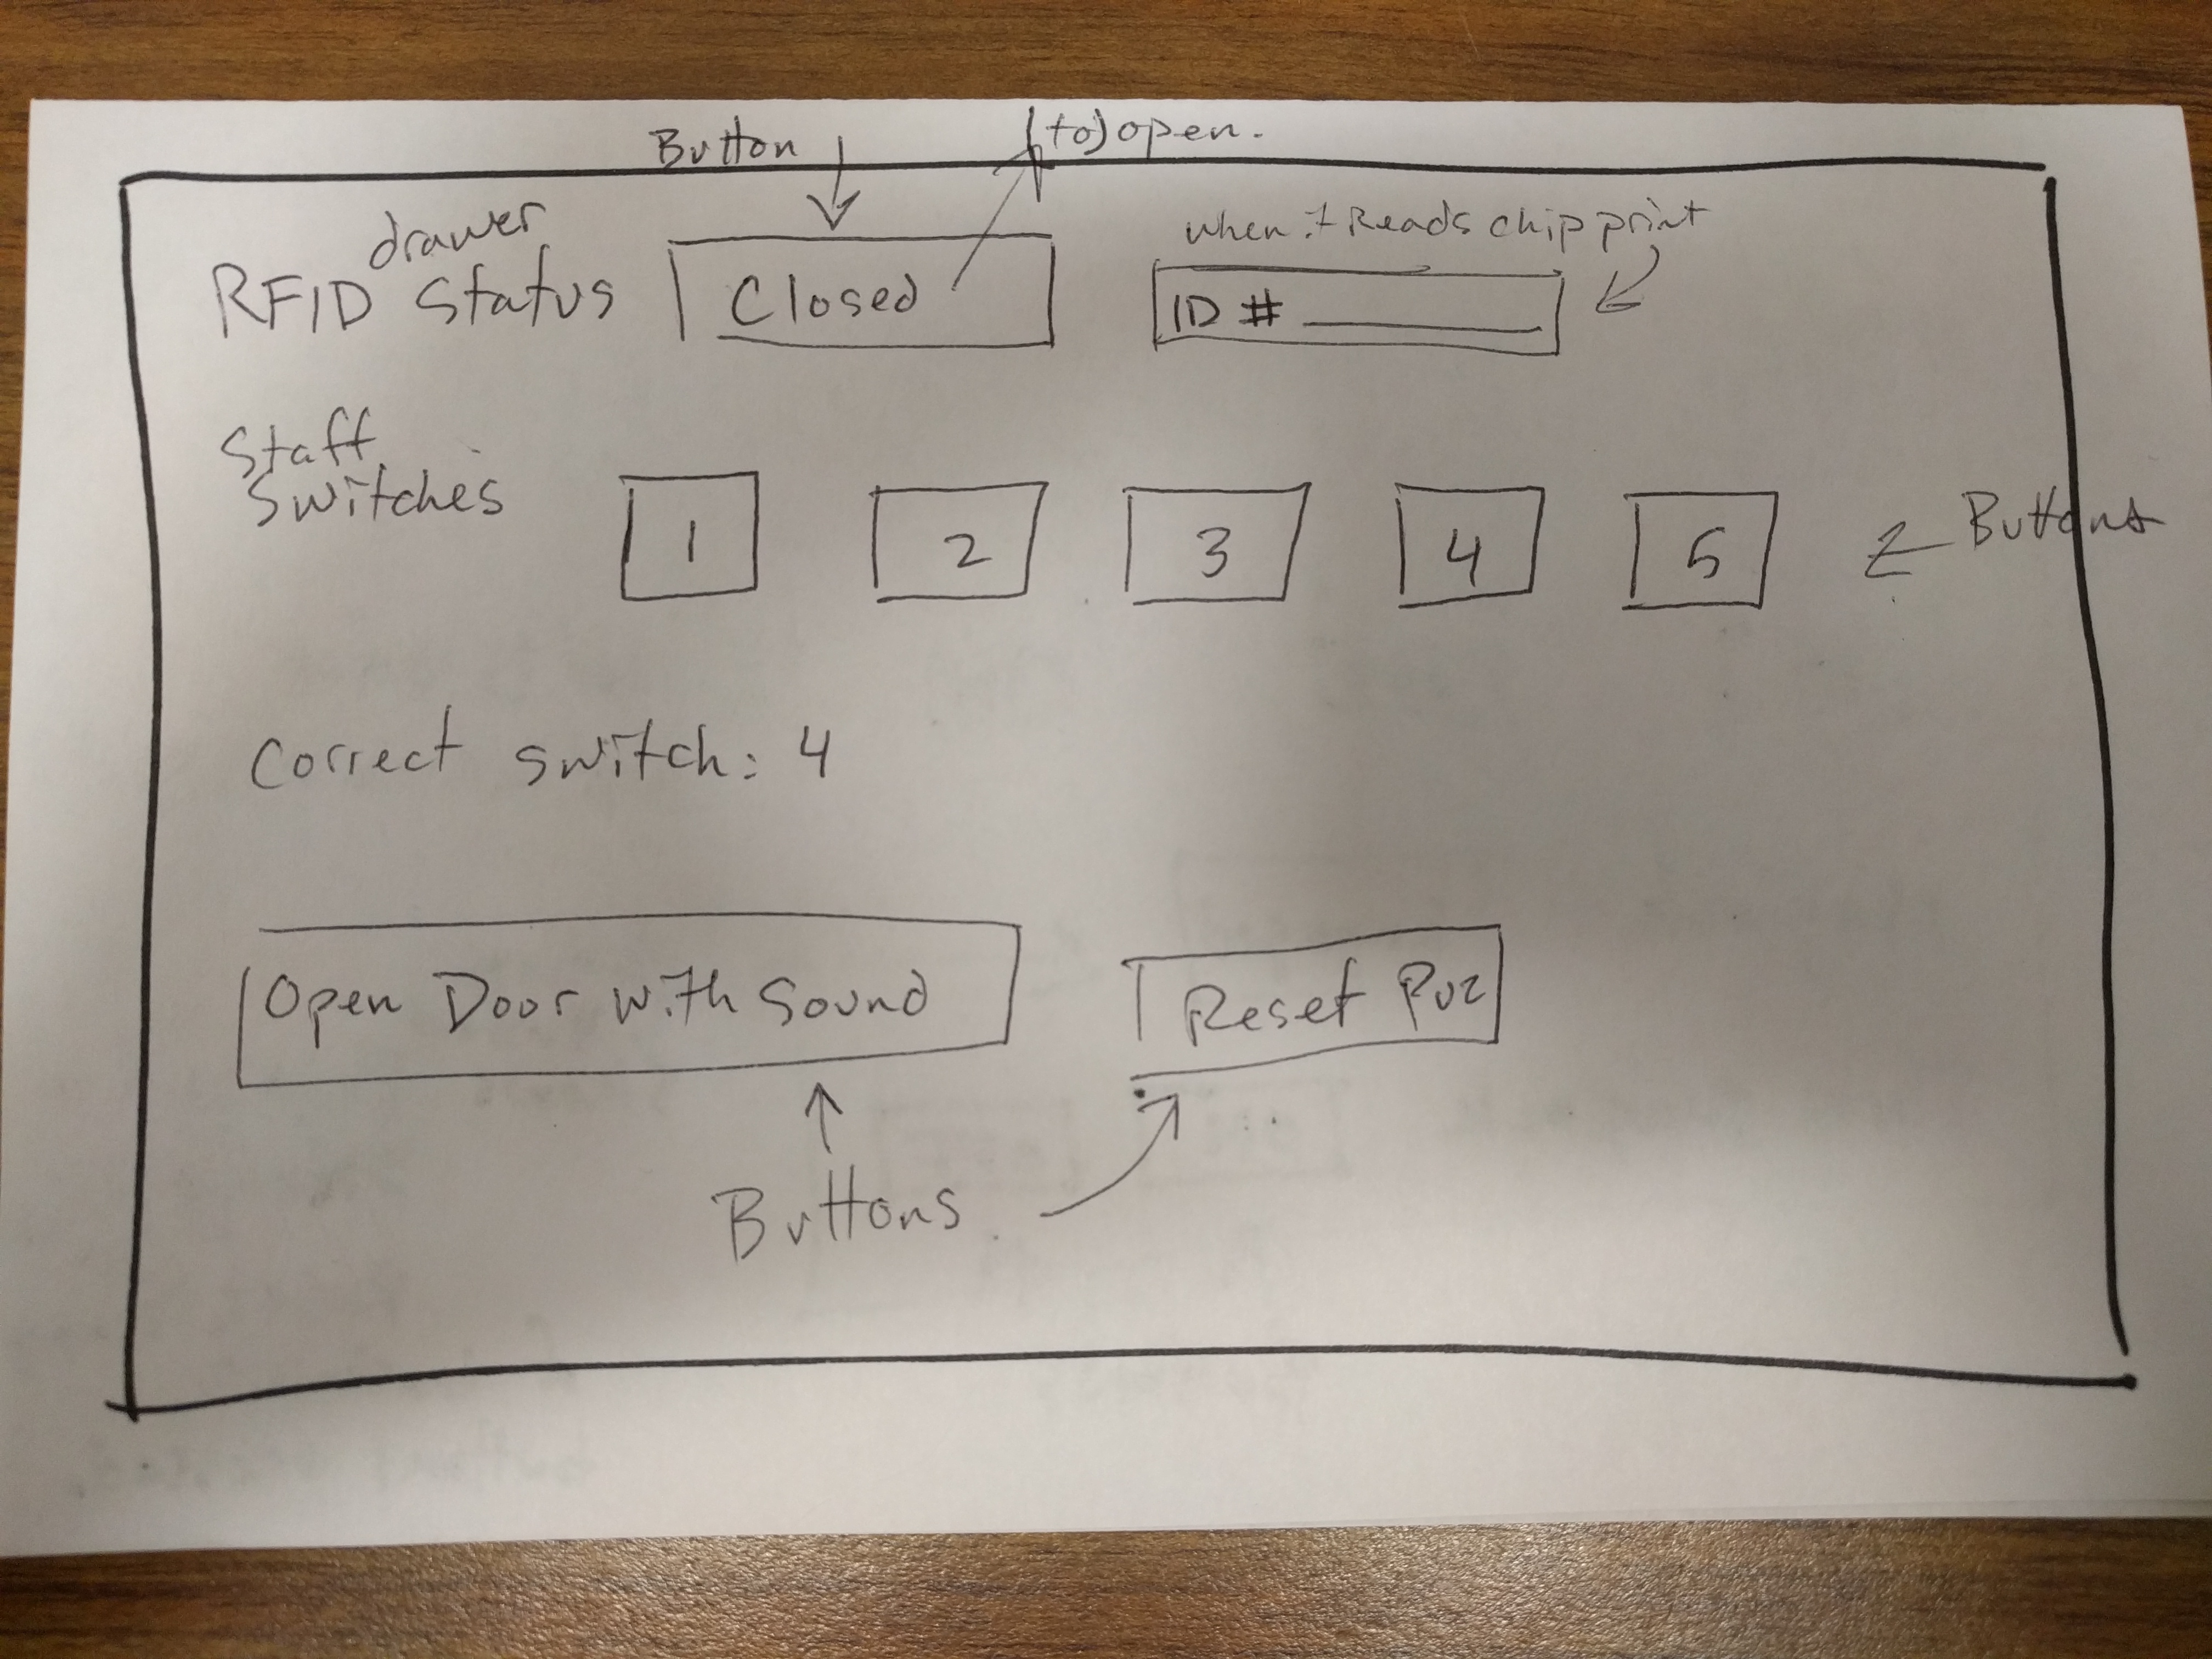 Button
to) open.
drawer
RFID Status
Closed
when it Reads chip print
ID # 
Staff
Switches
1 2 3 4 5
Buttons
Correct switch: 4
Open Door with Sound
Reset Puz
Buttons